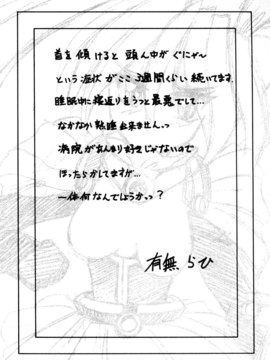 首を傾けると 頭ん中が ぐにゃ〜
という症状がここ3週間くらい続いてます
睡眠中に寝返りをうつと最悪でして…
なかなか熟睡出来ませんっ
病院があんまり好きじゃないので
ほったらかしてますが…
一体何なんでしょうかっ？
有無らひ